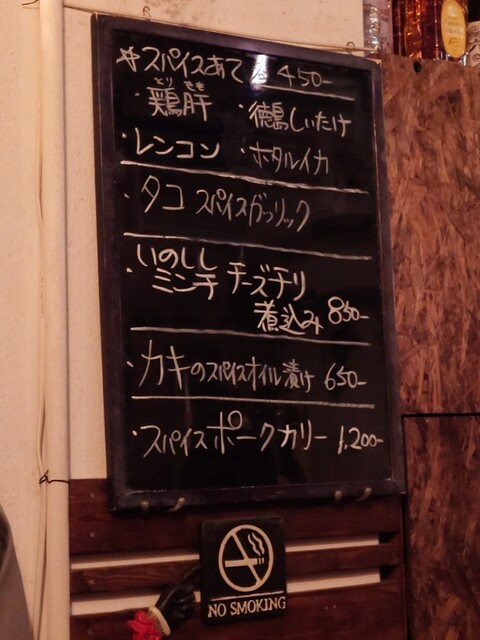 ☆スパイスあて 各450-
とり きも
・鶏肝 ・徳島しいたけ
・レンコン ・ホタルイカ
・タコ スパイスガーリック
・いのしし
ミンチ チーズチリ
煮込み 850-
・カキのスパイスオイル漬け 650-
・スパイスポークカリー 1,200-
NO SMOKING